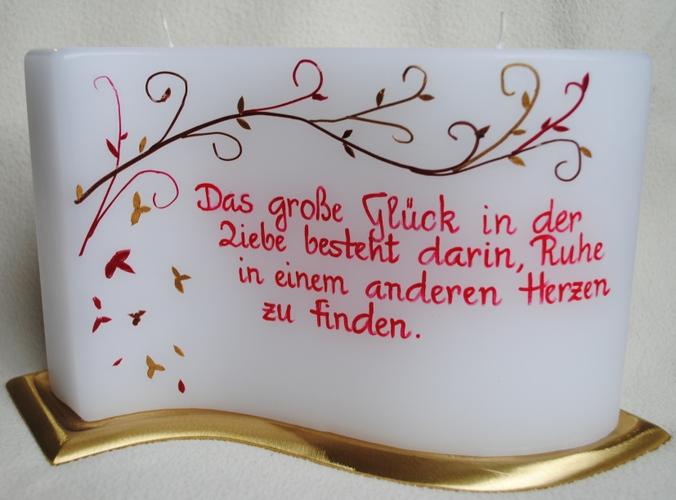 Das große Glück in der
Liebe besteht darin, Ruhe
in einem anderen Herzen
zu finden.